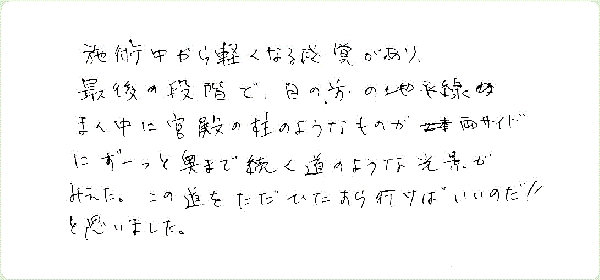 施術中から軽くなる感覚があり、
最後の段階で、目の前の地平線の
まん中に宮殿の柱のようなものが 両サイド
にずーっと奥まで続く道のような光景が
みえた。この道をただひたすら行けばいいのだ!!
と思いました。